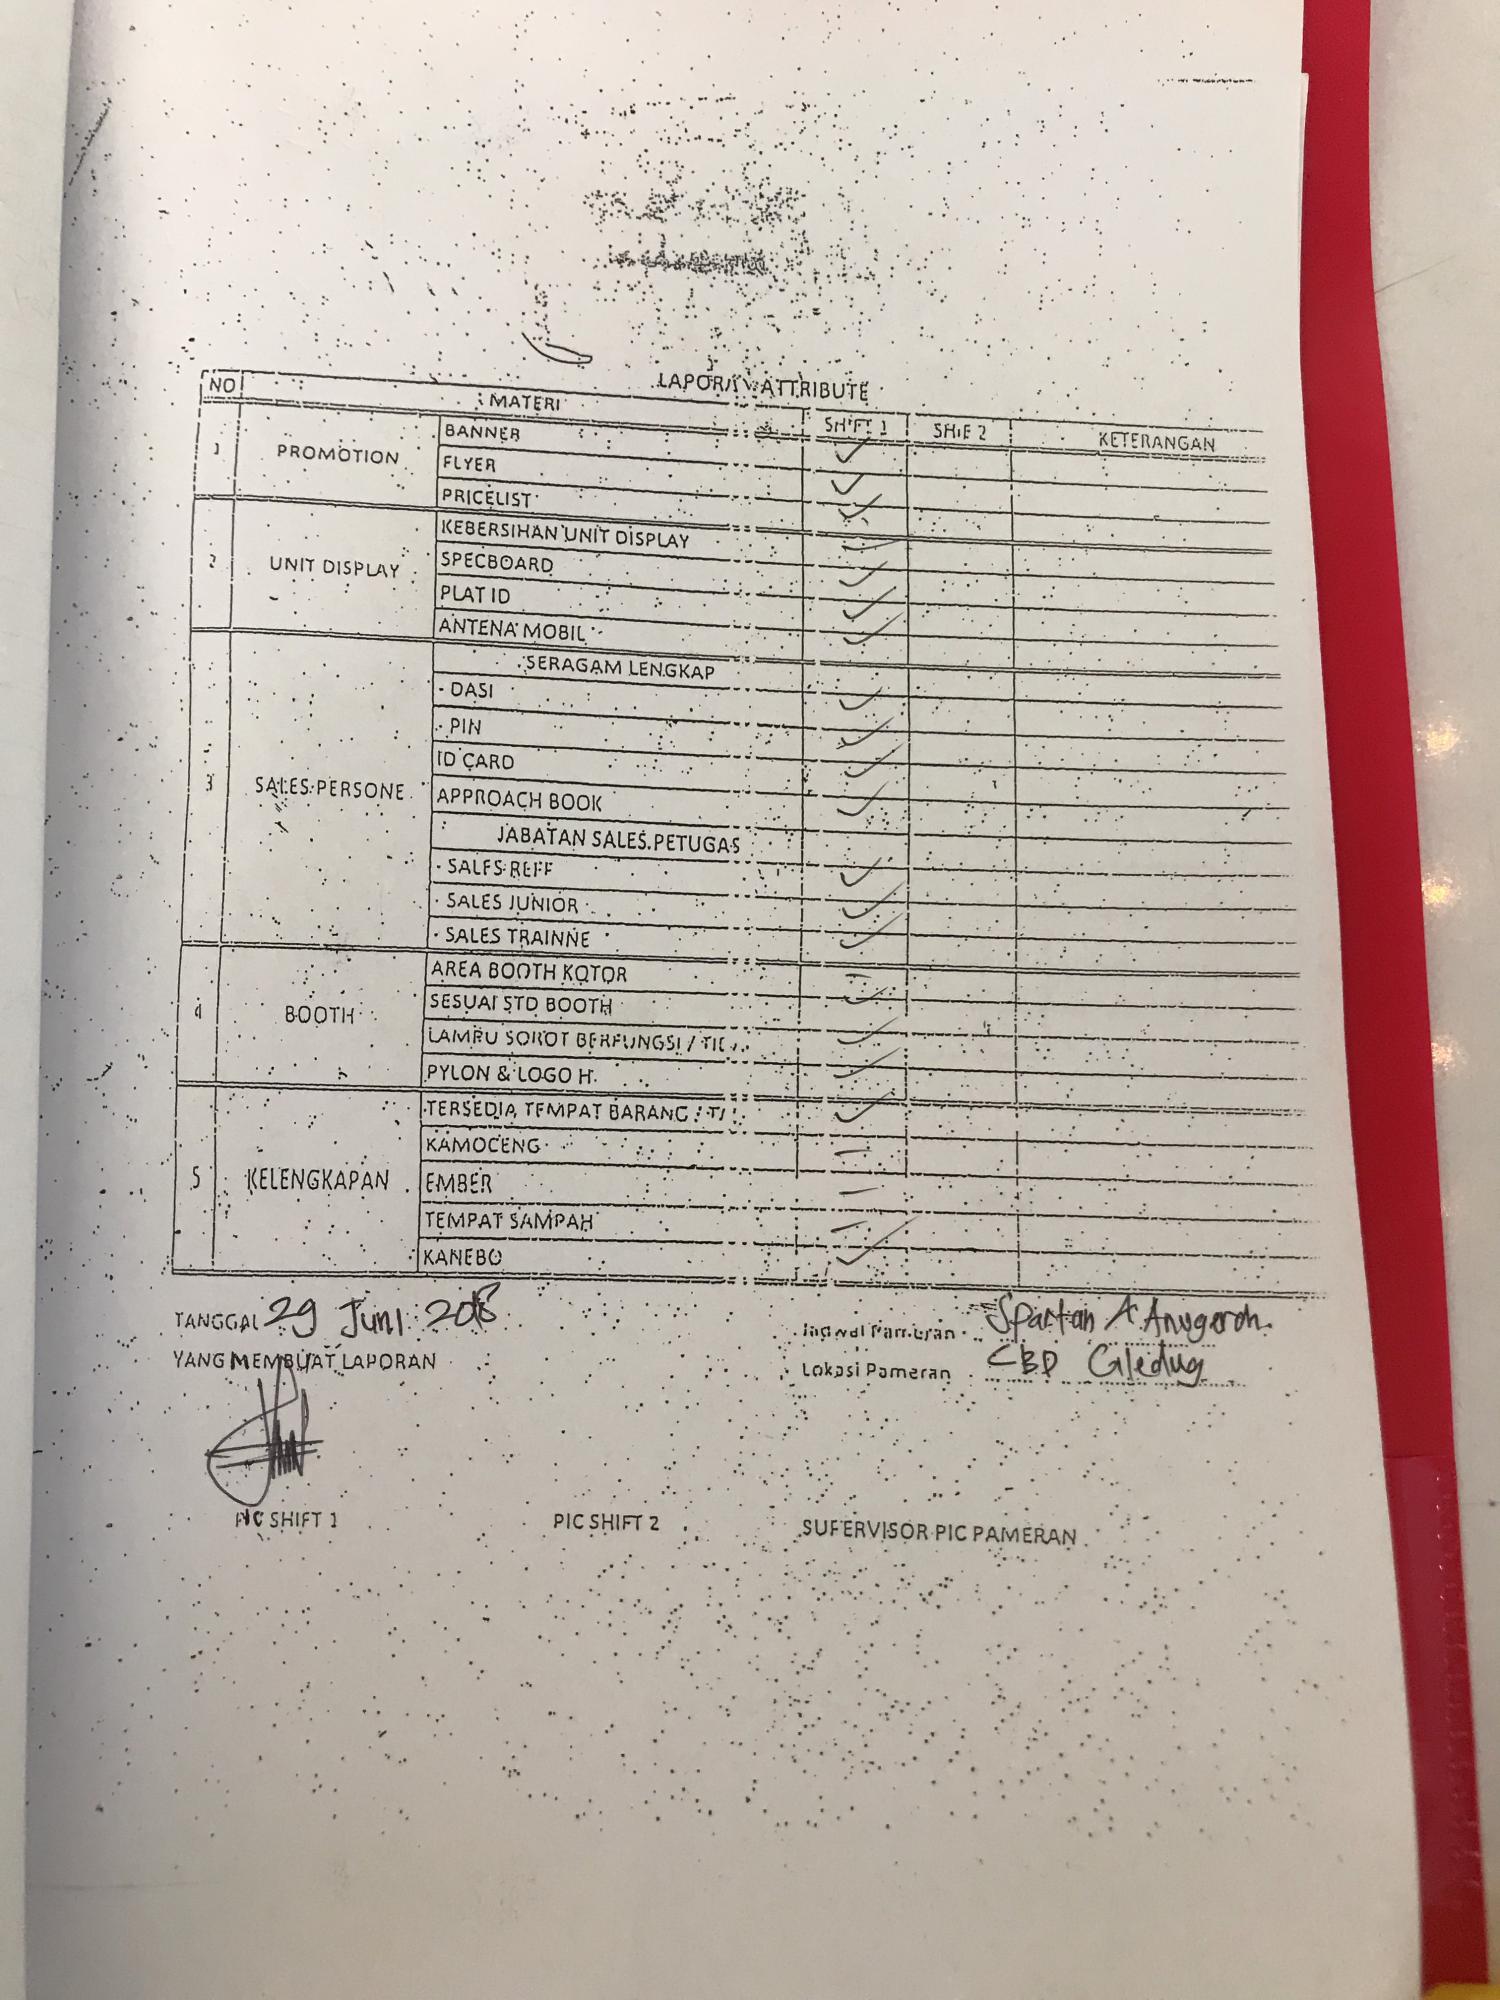 ATTRIBUTE
NO MATERI SHIFT 1 SHIF 2 KETERANGAN
1 PROMOTION BANNER ✓
FLYER ✓
PRICELIST ✓
2 UNIT DISPLAY KEBERSIHAN UNIT DISPLAY ✓
SPECBOARD ✓
PLAT ID ✓
ANTENA MOBIL ✓
3 SALES PERSONE SERAGAM LENGKAP
- DASI ✓
- PIN ✓
ID CARD ✓
APPROACH BOOK ✓
JABATAN SALES PETUGAS
- SALES REFF ✓
- SALES JUNIOR ✓
- SALES TRAINNE ✓
4 BOOTH AREA BOOTH KOTOR –
SESUAI STD BOOTH ✓
LAMPU SOROT BERFUNGSI / ✓
PYLON & LOGO H ✓
5 KELENGKAPAN TERSEDIA TEMPAT BARANG / ✓
KAMOCENG –
EMBER –
TEMPAT SAMPAH –
KANEBO ✓
TANGGAL 29 Juni 2018 Pameran Spartan A Anugerah
YANG MEMBUAT LAPORAN Lokasi Pameran CBD Ciledug
PIC SHIFT 1 PIC SHIFT 2 SUPERVISOR PIC PAMERAN